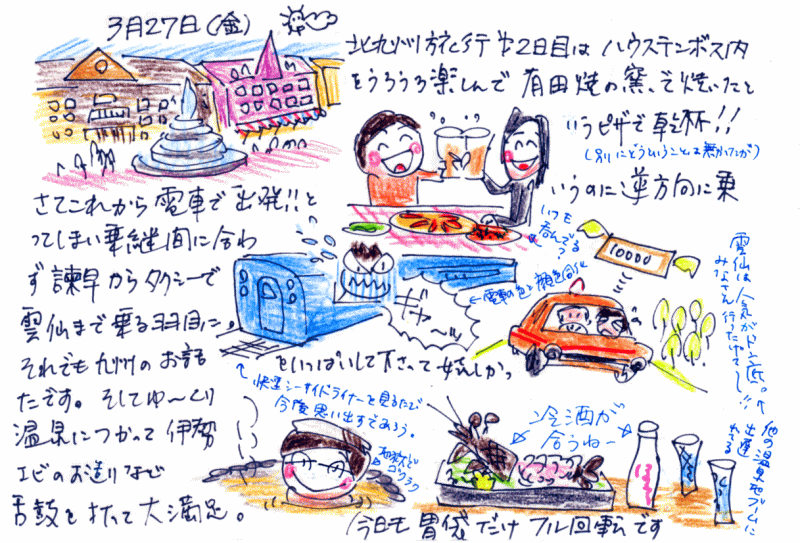 3月27日(金)
北九州旅行第2日目はハウステンボス内
をうろうろ楽しんで有田焼の窯で焼いたと
いうピザで乾杯!!
(別にどうということは無かったが)
さてこれから電車で出発!!と
いうのに逆方向に乗
ってしまい乗継間に合わ
ず諫早からタクシーで
雲仙まで乗る羽目に。
それでも九州のお話
をいっぱいして下さって嬉しかっ
たです。そしてゆ〜くり
温泉につかって伊勢
エビのお造りなど
舌鼓を打って大満足。
いつも
呑んでる?
←電車の色と顔色同じ
ギャ〜ッ
10000
雲仙は人気がドン底。
みなさん行ったげて〜!!
他の温泉地ブームに
出遅れてる
快速シーサイドライナーを見るたび
今後思い出すであろう。
地獄で
ゴクラク
冷酒が
合うねー
今日も胃袋だけフル回転です